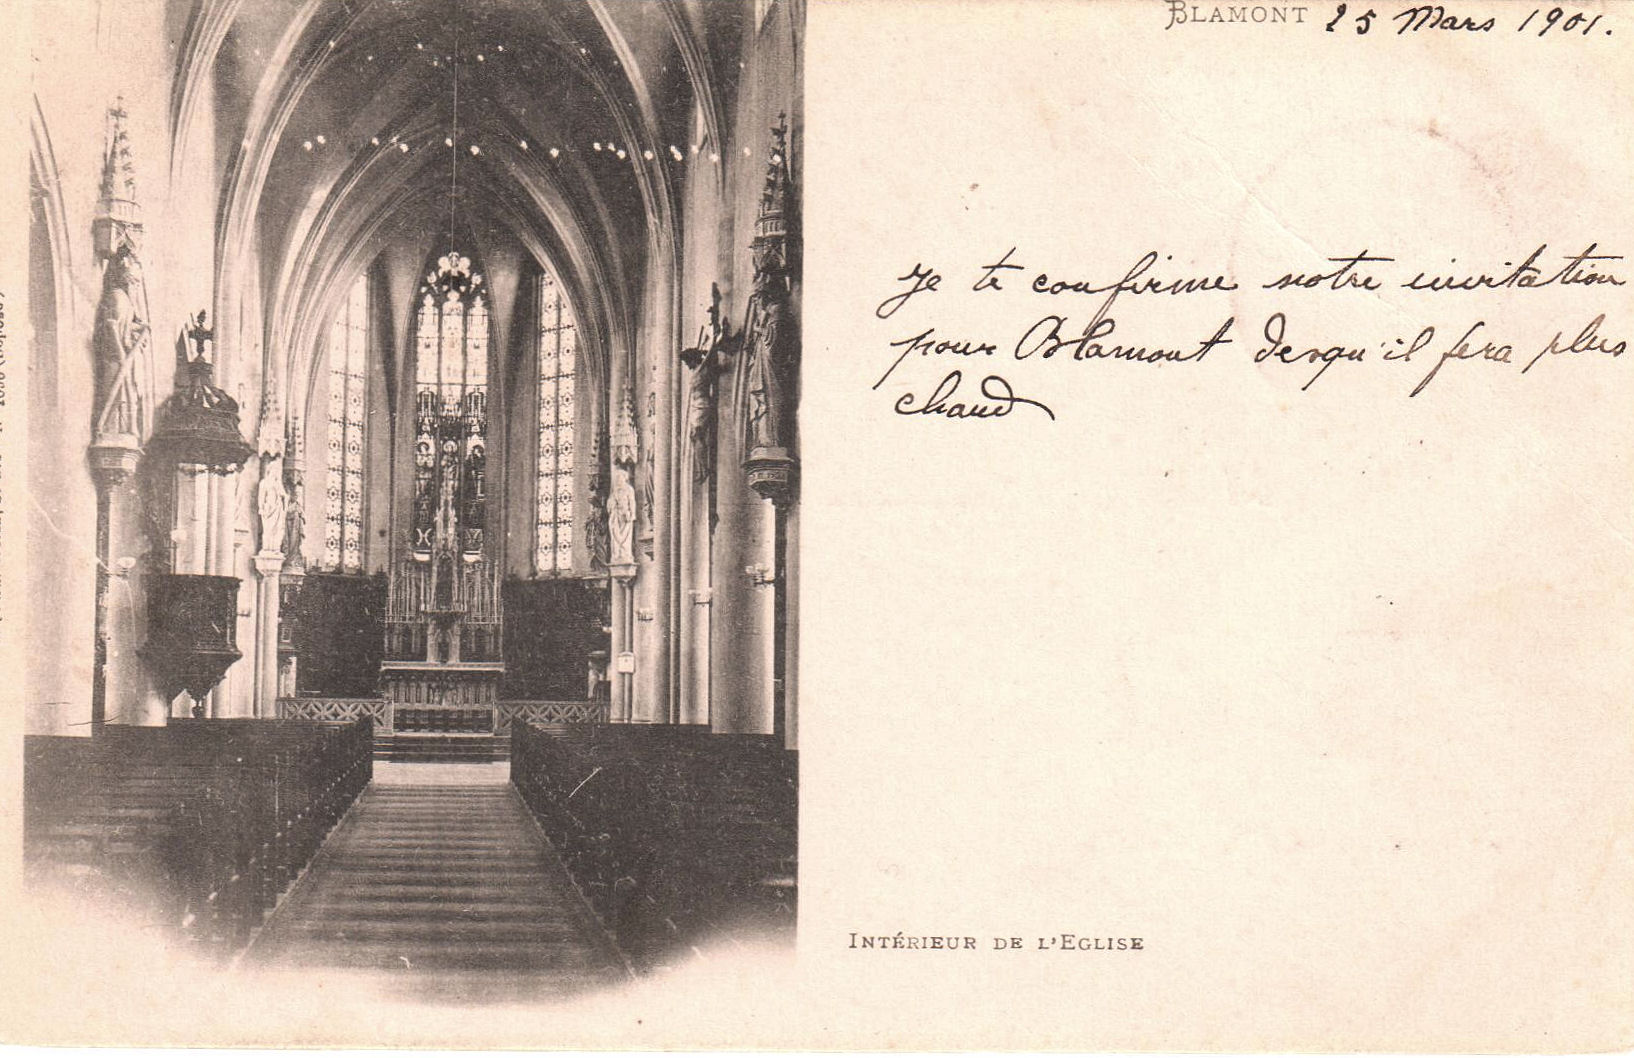 BLAMONT 25 Mars 1901.
Je te confirme notre invitation
pour Blamont desqu'il fera plus
chaud
INTÉRIEUR DE L'EGLISE